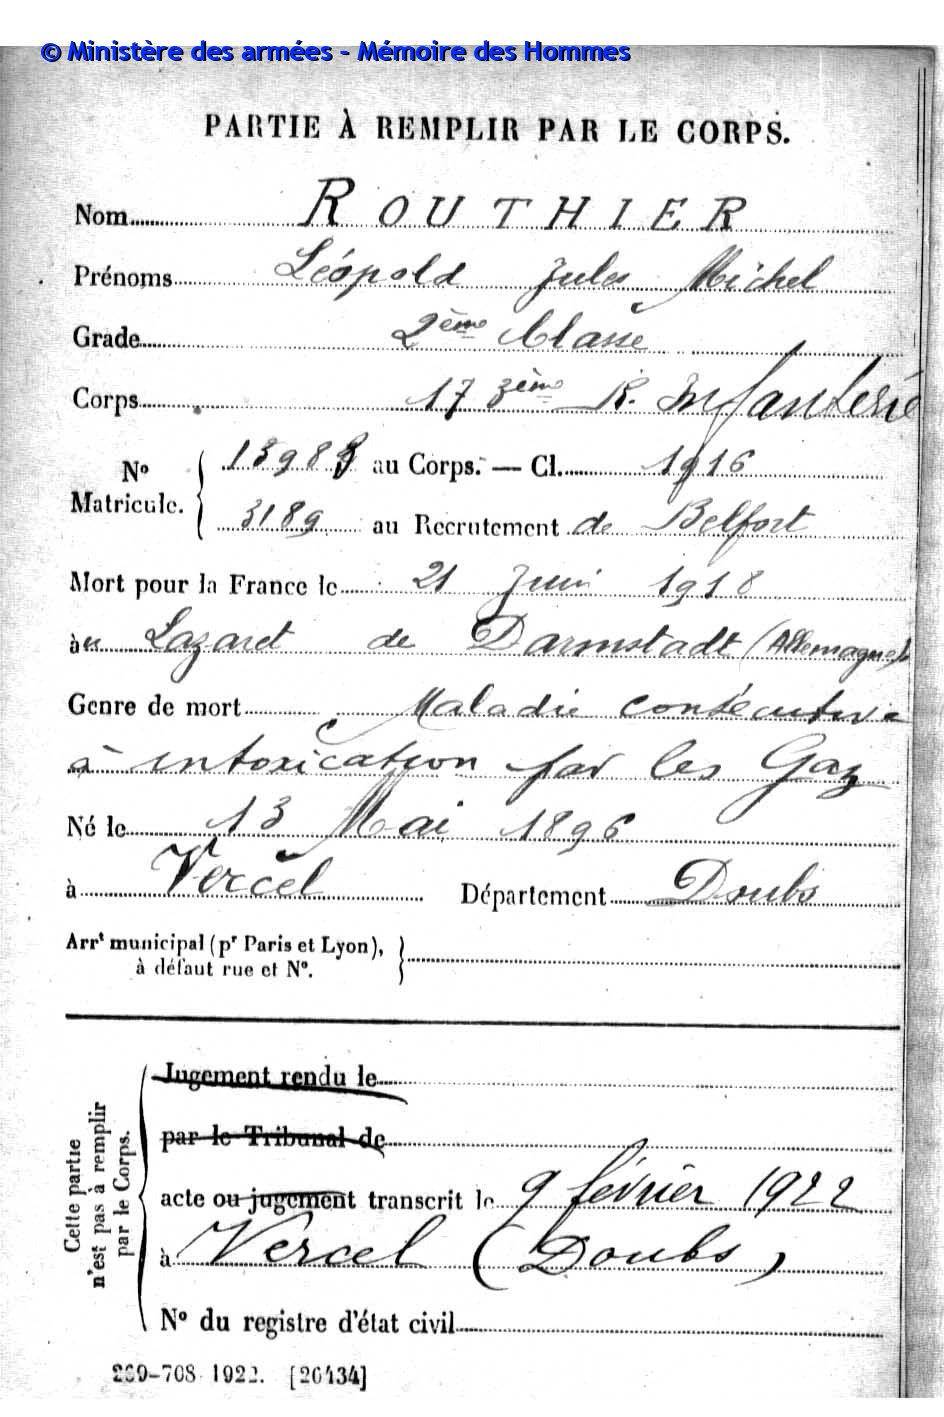 © Ministère des armées - Mémoire des Hommes
PARTIE À REMPLIR PAR LE CORPS.
Nom ROUTHIER
Prénoms Léopold Jules Michel
Grade 2ème Classe
Corps 173ème R. Infanterie
No Matricule. 13983 au Corps. — Cl. 1916
3189 au Recrutement de Belfort
Mort pour la France le 21 Juin 1918
au Lazaret de Darmstadt (Allemagne)
Genre de mort Maladie consécutive
à intoxication par les Gaz
Né le 13 Mai 1896
à Vercel Département Doubs
Arrt municipal (pr Paris et Lyon),
à défaut rue et No.
Cette partie
n'est pas à remplir
par le Corps.
Jugement rendu le
par le Tribunal de
acte ou jugement transcrit le 9 février 1922
à Vercel (Doubs)
No du registre d'état civil
269-708 1922. [26434]